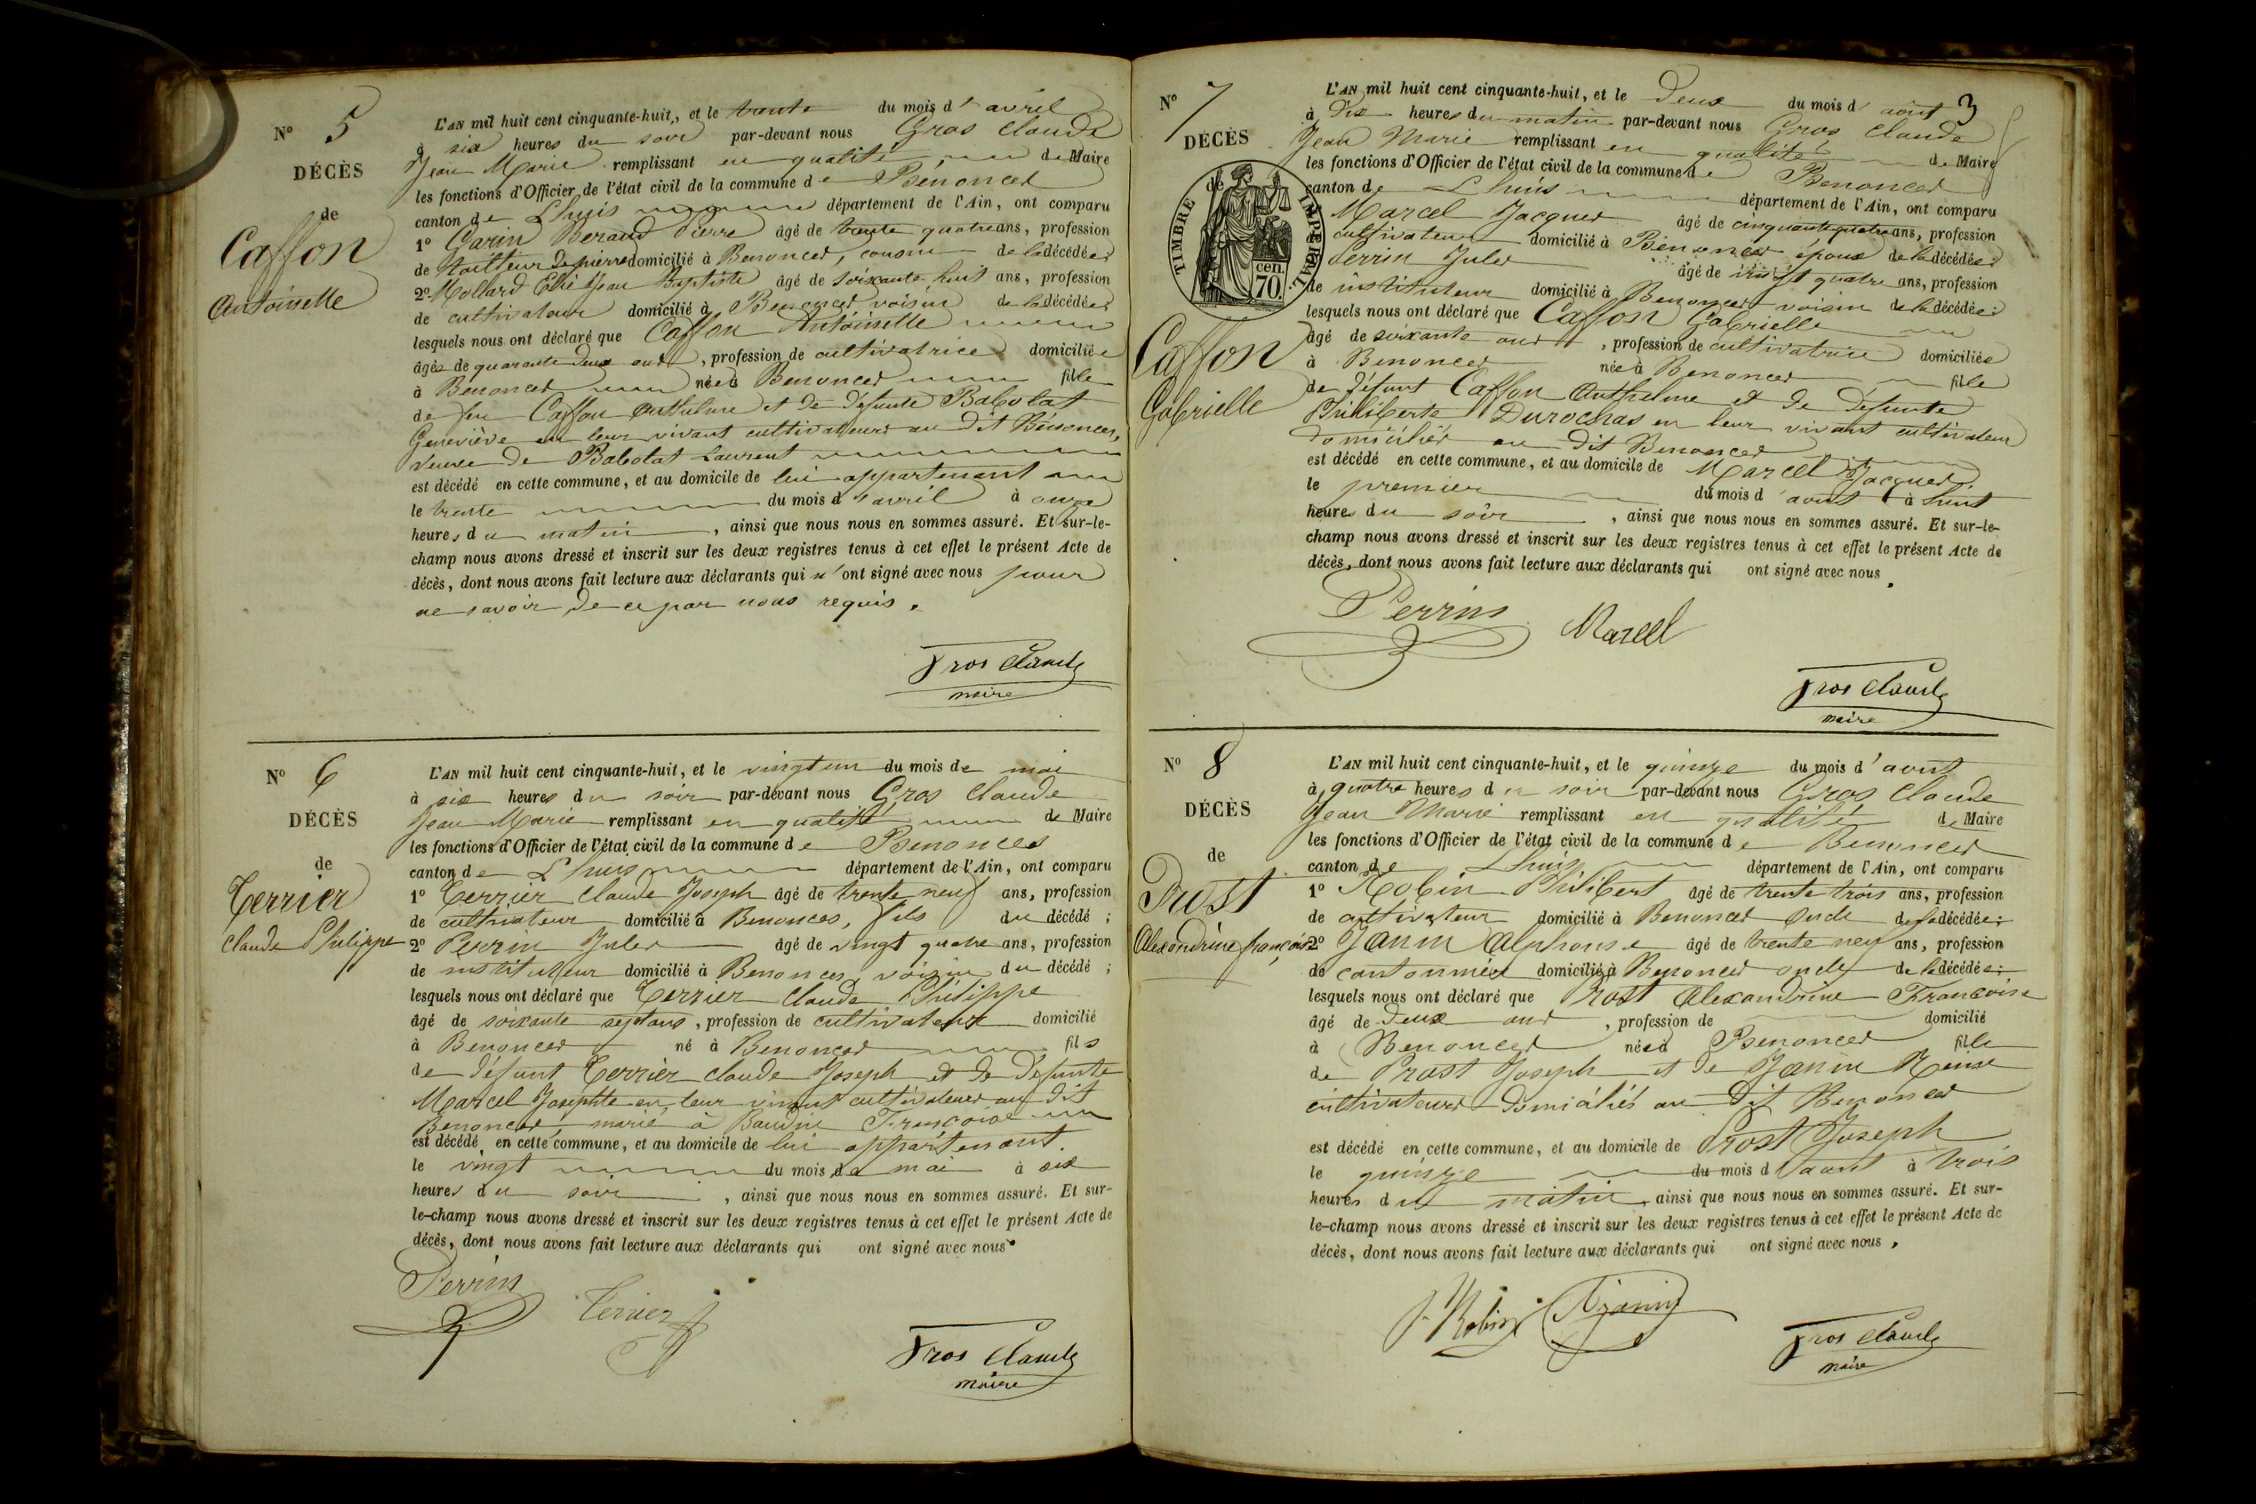 N° 5
DÉCÈS
de
Caffon
Antoinette
L'AN mil huit cent cinquante-huit, et le trente du mois d'avril
à six heures du soir par-devant nous Gros Claude
Jean Marie remplissant en qualité de Maire
les fonctions d'Officier de l'état civil de la commune de Benonces
canton de Lhuis département de l'Ain, ont comparu
1° Garin Beraud Pierre âgé de trente quatre ans, profession
de tailleur de pierre domicilié à Benonces, cousin de la décédée;
2° Mollard Elie Jean Baptiste âgé de soixante huit ans, profession
de cultivateur domicilié à Benonces voisin de la décédée;
lesquels nous ont déclaré que Caffon Antoinette
âgée de quarante deux ans, profession de cultivatrice domiciliée
à Benonces née à Benonces fille
de feu Caffon Anthelme et de défunte Babolat
Geneviève en leur vivant cultivateurs au dit Bénonces,
veuve de Babolat Laurent
est décédé en cette commune, et au domicile de lui appartenant
le trente du mois d'avril à onze
heures du matin, ainsi que nous nous en sommes assuré. Et sur-le-
champ nous avons dressé et inscrit sur les deux registres tenus à cet effet le présent Acte de
décès, dont nous avons fait lecture aux déclarants qui n'ont signé avec nous pour
ne savoir de ce par nous requis.
Gros Claude
maire
N° 6
DÉCÈS
de
Terrier
Claude Philippe
L'AN mil huit cent cinquante-huit, et le vingt un du mois de mai
à six heures du soir par-devant nous Gros Claude
Jean Marie remplissant en qualité de Maire
les fonctions d'Officier de l'état civil de la commune de Benonces
canton de Lhuis département de l'Ain, ont comparu
1° Terrier Claude Joseph âgé de trente neuf ans, profession
de cultivateur domicilié à Benonces, fils du décédé;
2° Perrin Jules âgé de vingt quatre ans, profession
de instituteur domicilié à Benonces, voisin du décédé;
lesquels nous ont déclaré que Terrier Claude Philippe
âgé de soixante sept ans, profession de cultivateur domicilié
à Benonces né à Benonces fils
de défunt Terrier Claude Joseph et de défunte
Marcel Josephte en leur vivant cultivateurs au dit
Benonces marié à Baudin Françoise
est décédé en cette commune, et au domicile de lui appartenant
le vingt du mois de mai à six
heures du soir, ainsi que nous nous en sommes assuré. Et sur-
le-champ nous avons dressé et inscrit sur les deux registres tenus à cet effet le présent Acte de
décès, dont nous avons fait lecture aux déclarants qui ont signé avec nous.
Perrin Terrier
Gros Claude
maire
3
N° 7
DÉCÈS
de
TIMBRE IMPÉRIAL
cen.
70.
Caffon
Gabrielle
L'AN mil huit cent cinquante-huit, et le deux du mois d'août
à dix heures du matin par-devant nous Gros Claude
Jean Marie remplissant en qualité de Maire
les fonctions d'Officier de l'état civil de la commune de Benonces
canton de Lhuis département de l'Ain, ont comparu
Marcel Jacques âgé de cinquante quatre ans, profession
cultivateur domicilié à Benonces époux de la décédée;
Perrin Jules âgé de vingt quatre ans, profession
de instituteur domicilié à Benonces voisin de la décédée;
lesquels nous ont déclaré que Caffon Gabrielle
âgé de soixante ans, profession de cultivatrice domiciliée
à Benonces née à Benonces fille
de défunt Caffon Anthelme et de défunte
Philiberte Durochas en leur vivant cultivateurs
domiciliés au dit Benonces
est décédé en cette commune, et au domicile de Marcel Jacques
le premier du mois d'aout à huit
heures du soir, ainsi que nous nous en sommes assuré. Et sur-le-
champ nous avons dressé et inscrit sur les deux registres tenus à cet effet le présent Acte de
décès, dont nous avons fait lecture aux déclarants qui ont signé avec nous.
Perrin Marcel
Gros Claude
maire
N° 8
DÉCÈS
de
Prost
Alexandrine françoise
L'AN mil huit cent cinquante-huit, et le quinze du mois d'aout
à quatre heures du soir par-devant nous Gros Claude
Jean Marie remplissant en qualité de Maire
les fonctions d'Officier de l'état civil de la commune de Benonces
canton de Lhuis département de l'Ain, ont comparu
1° Robin Philibert âgé de trente trois ans, profession
de cultivateur domicilié à Benonces oncle de la décédée;
2° Janin Alphonse âgé de trente neuf ans, profession
de cantonnier domicilié à Benonces oncle de la décédée;
lesquels nous ont déclaré que Prost Alexandrine Francoise
âgé de deux ans, profession de domicilié
à Benonces née à Benonces fille
de Prost Joseph et de Janin Reine
cultivateurs domiciliés au dit Benonces
est décédé en cette commune, et au domicile de Prost Joseph
le quinze du mois d'aout à trois
heures du matin, ainsi que nous nous en sommes assuré. Et sur-
le-champ nous avons dressé et inscrit sur les deux registres tenus à cet effet le présent Acte de
décès, dont nous avons fait lecture aux déclarants qui ont signé avec nous.
Robin Janin
Gros Claude
maire